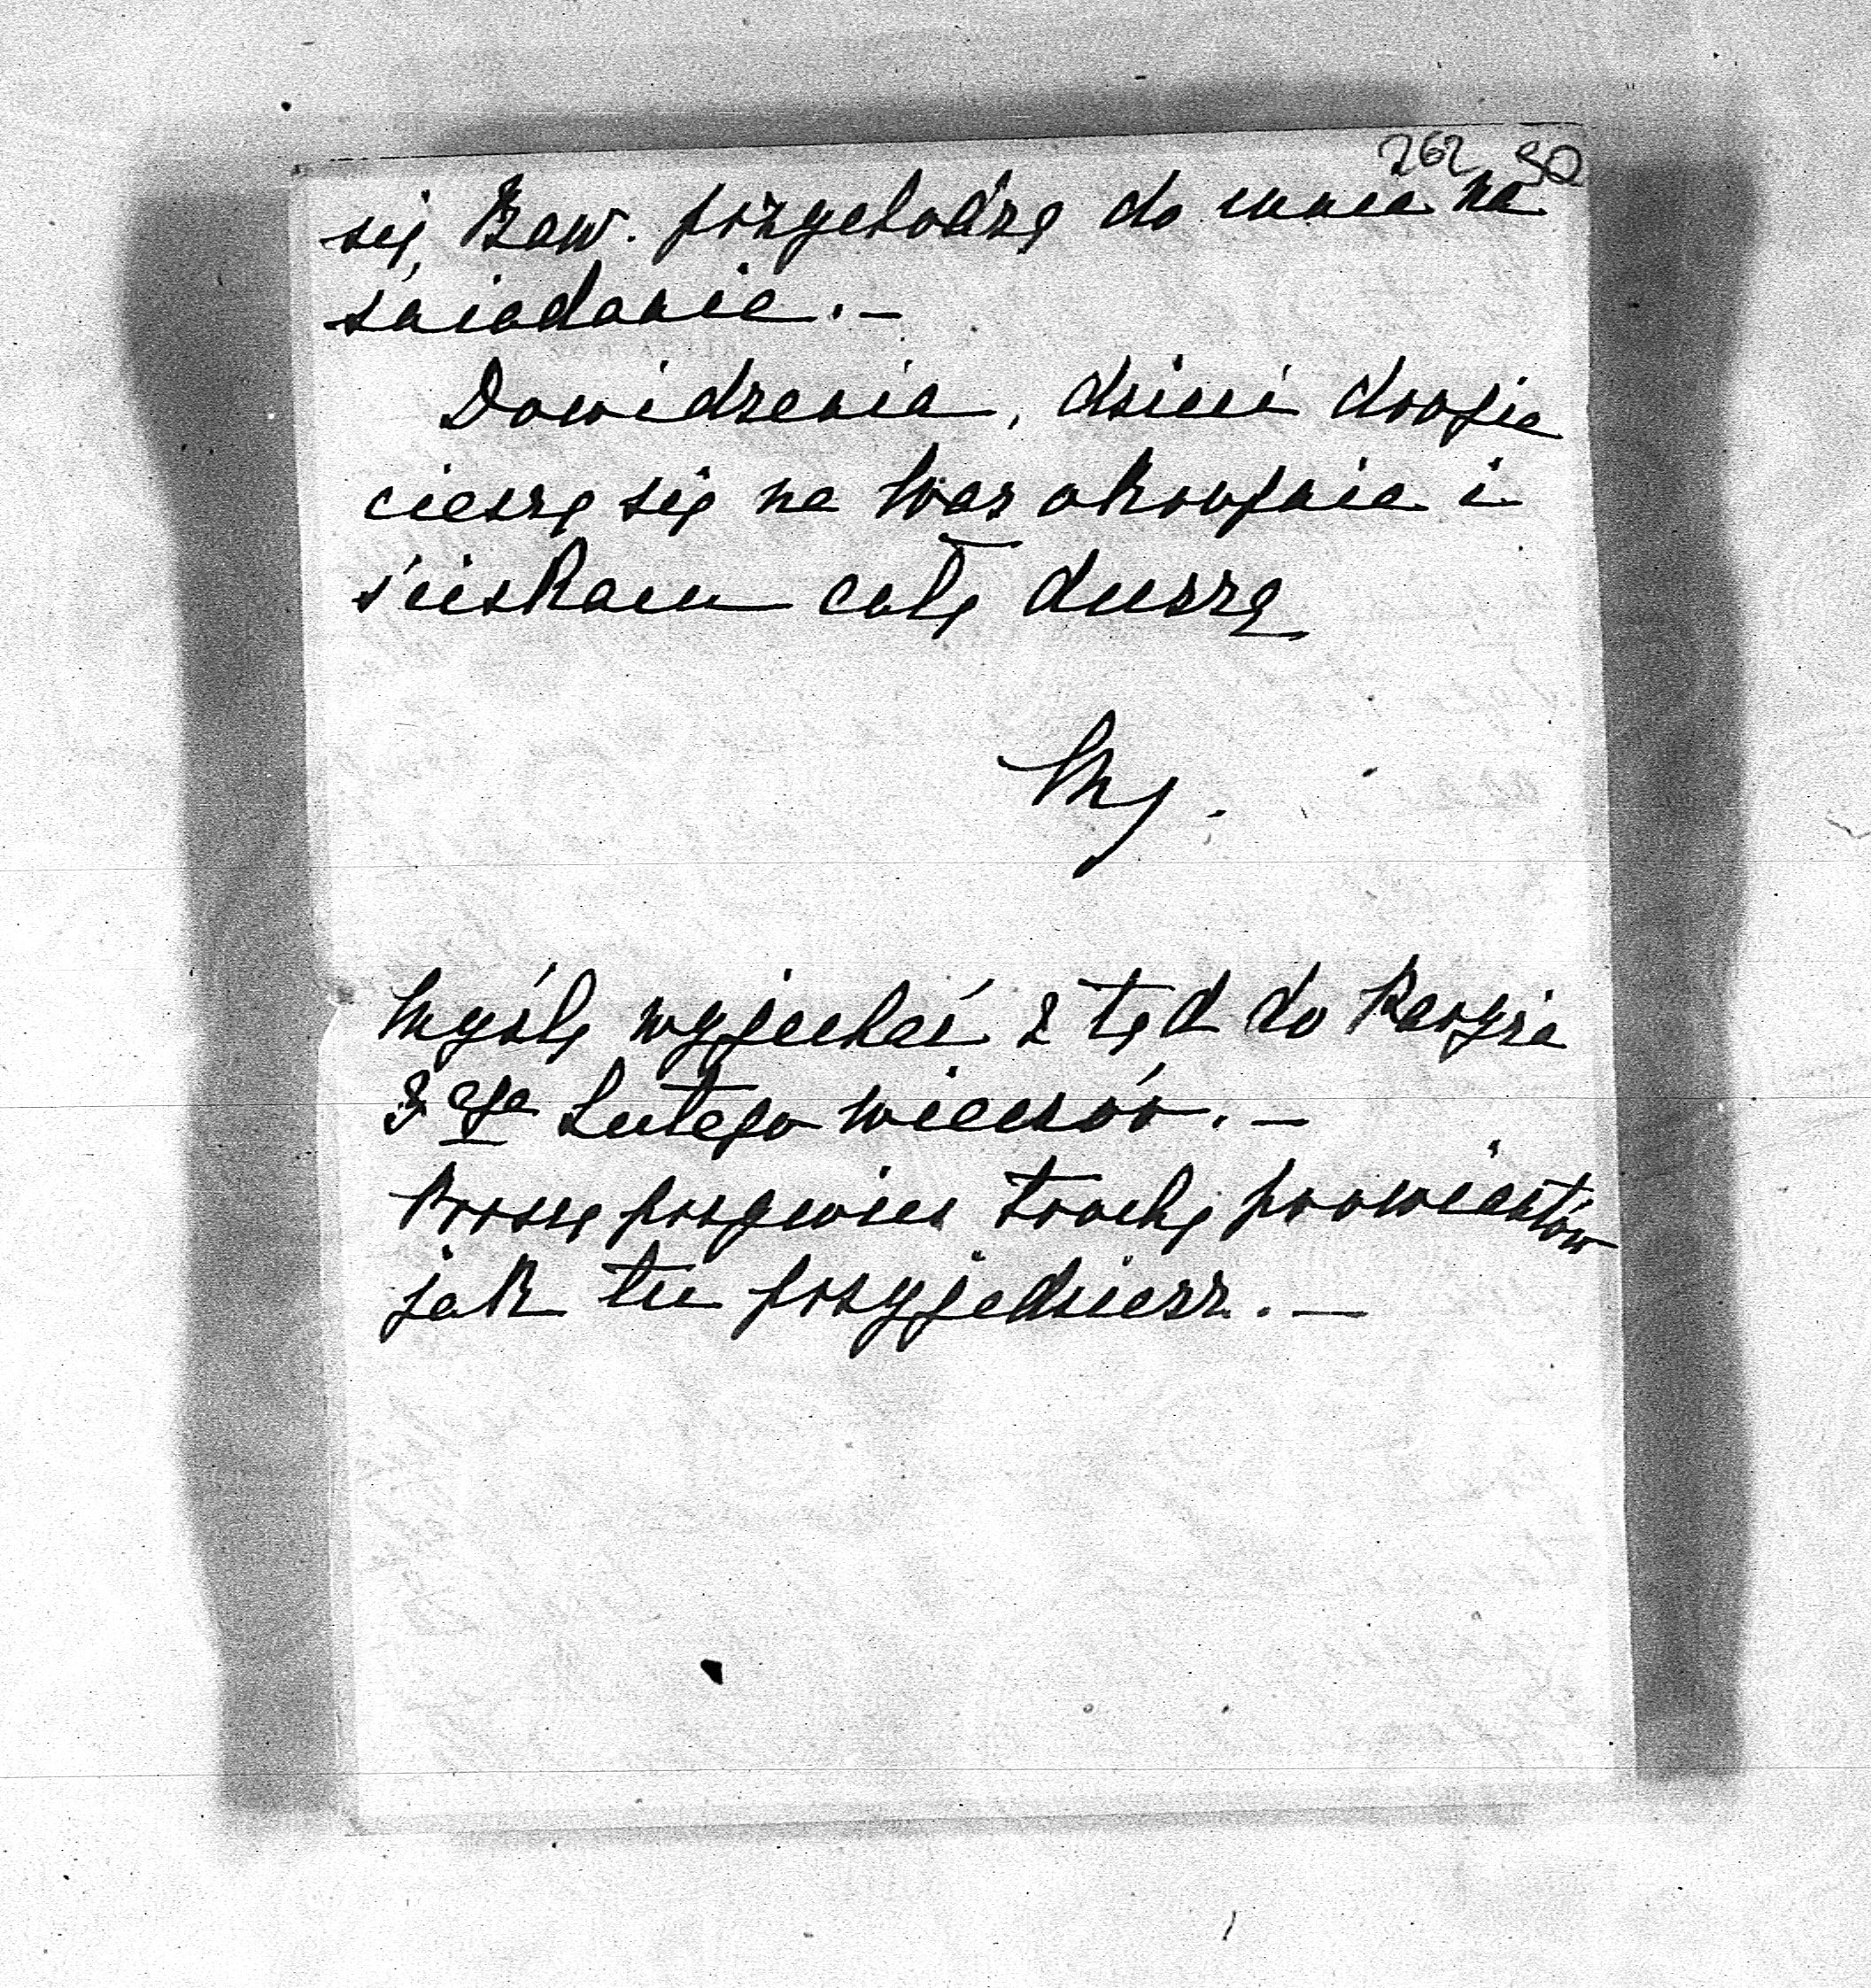 262 50
się Zaw. przychodzę do mnie na
śniadanie. –
Dowidzenia, dzieci drogie
cieszę się na Was okropnie i
ściskam całę duszę
Myślę wyjechać z tęd do Paryża
3 go Lutego wieczór. –
Proszę przywieź trochę prowiantów
jak tu przyjedziesz. –